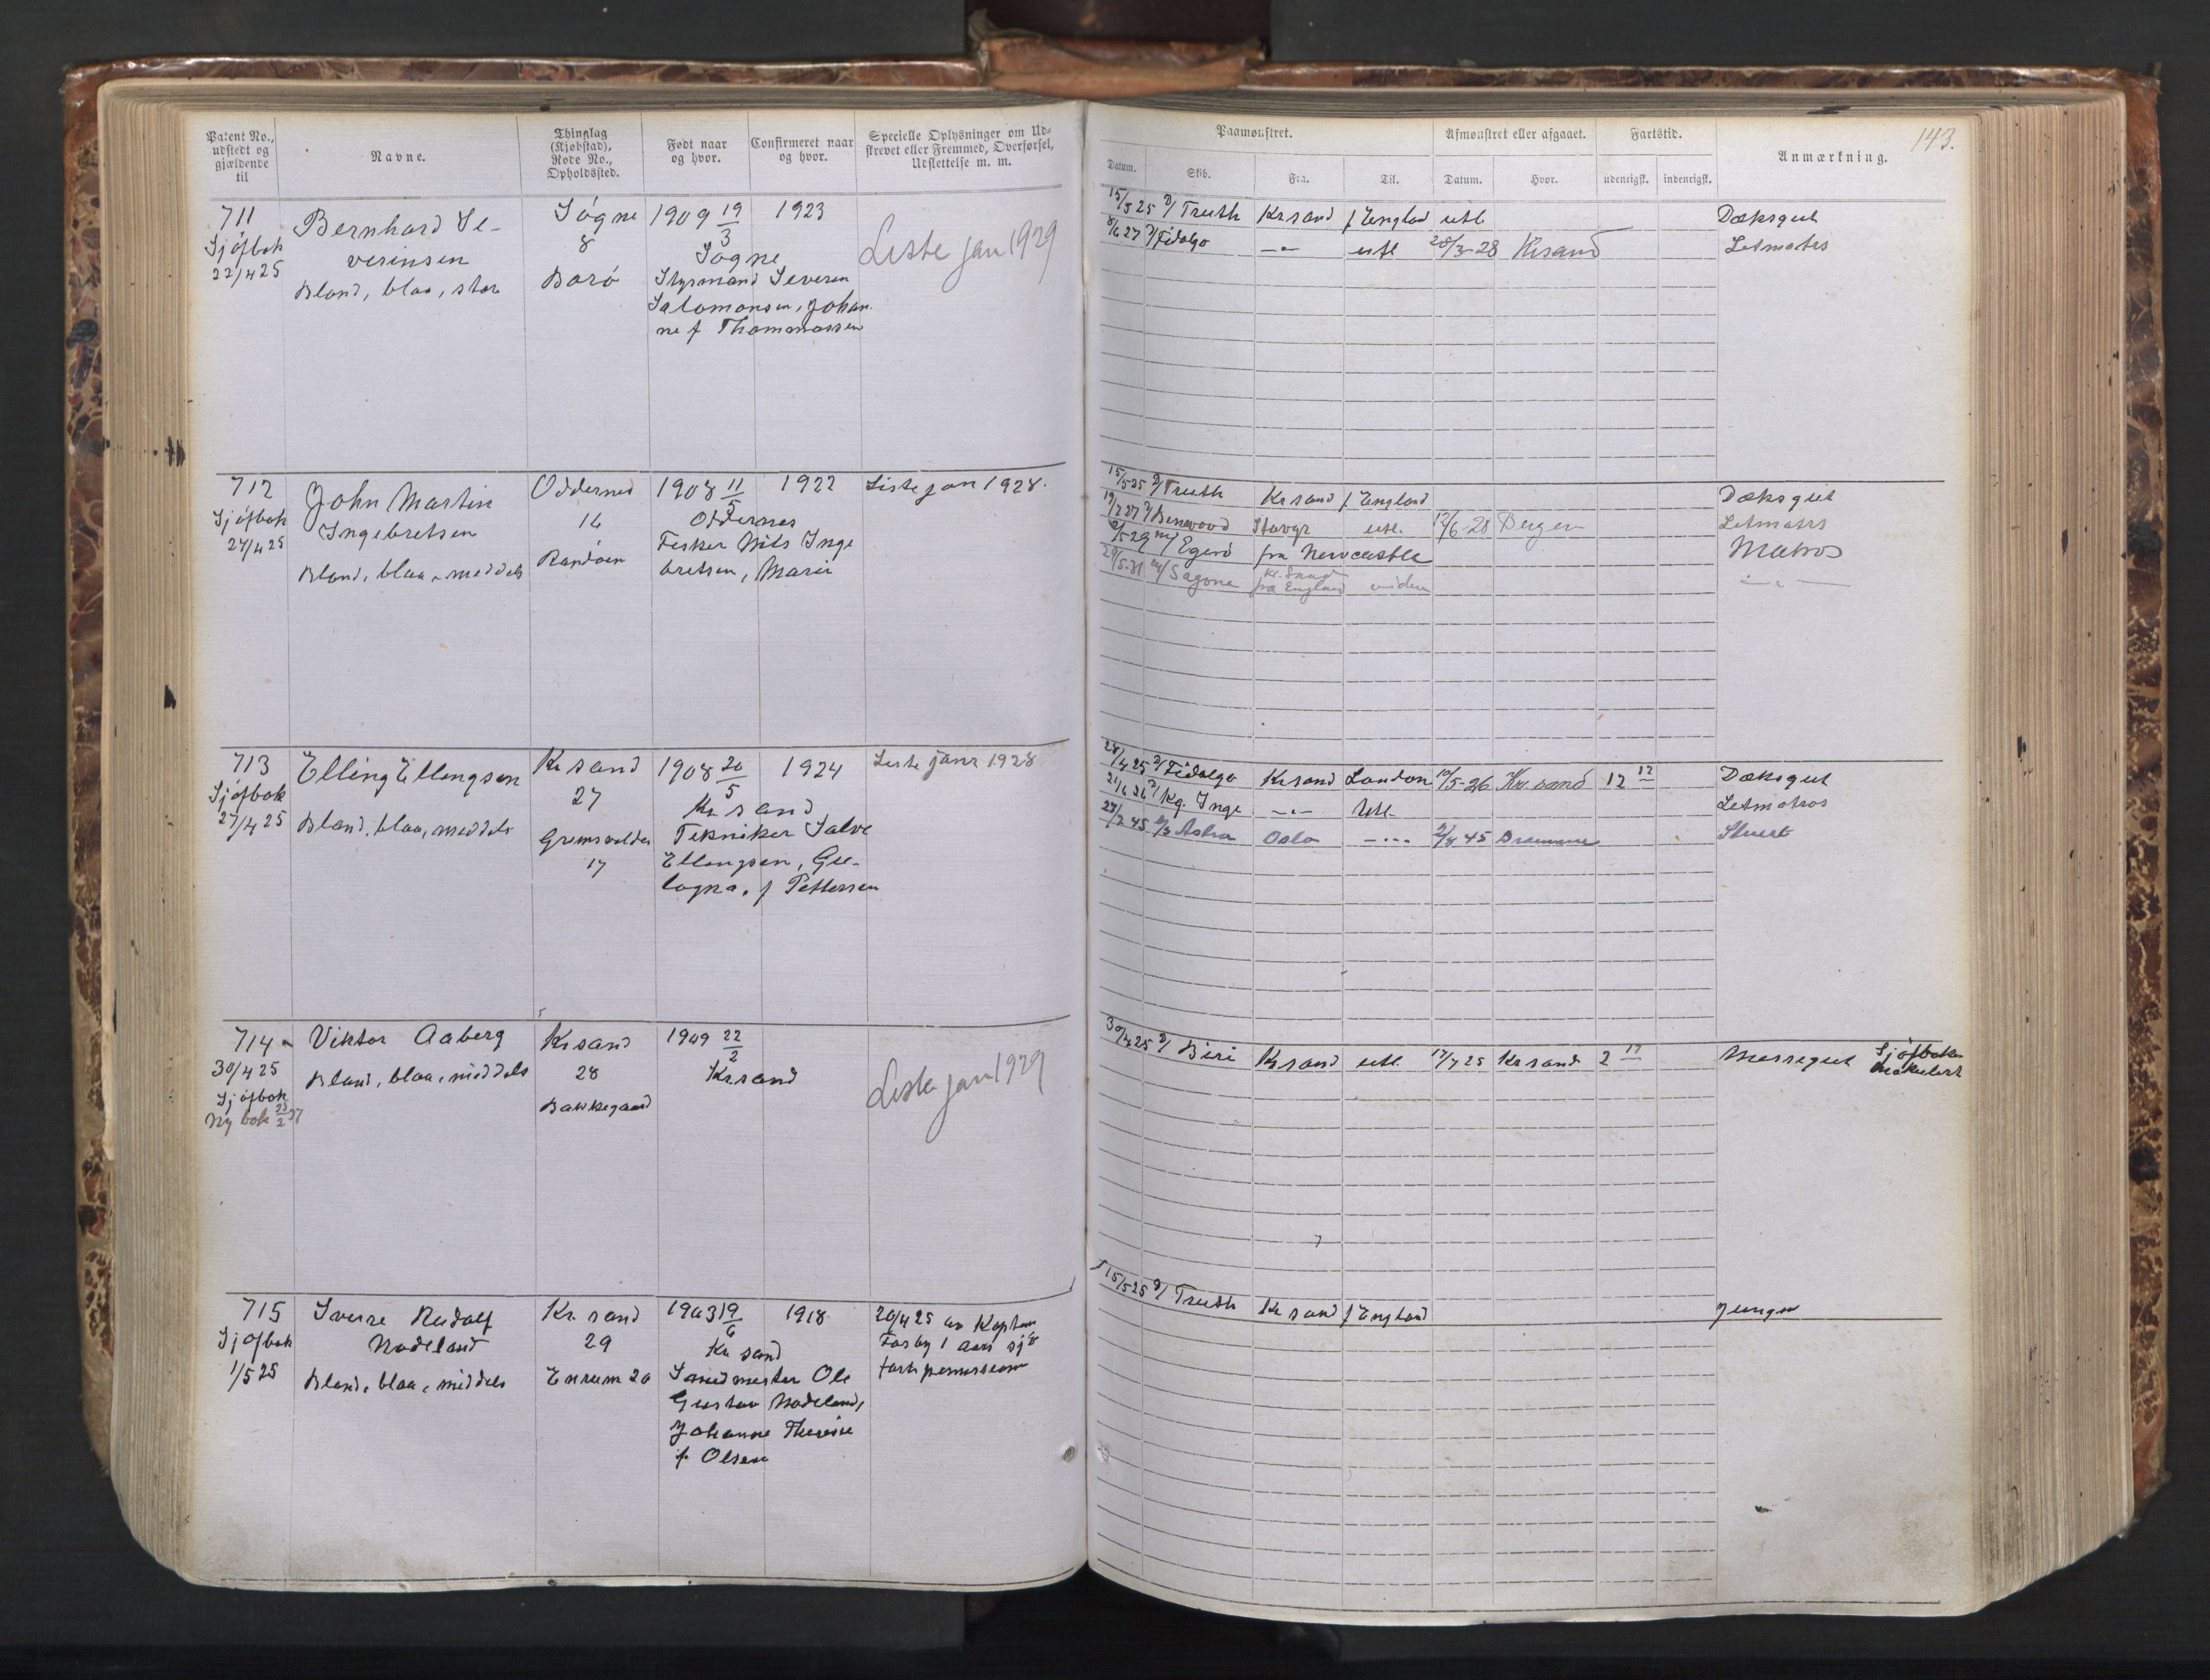 Patent No., udstedt og gjældende til
Navne.
Thinglag (Kjøbstad), Rode No., Opholdssted.
Født naar og hvor.
Confirmeret naar og hvor.
Specielle Oplysninger om Udskrevet eller Fremmed, Overførsel, Udslettelse m. m.
Paamønstret.
Datum.
Skib.
Fra.
Til.
Afmønstret eller afgaaet.
Datum.
Hvor.
Fartstid.
udenrigsk.
indenrigsk.
Anmærkning.
143.
711
Sjøfbok
22/4 25
Bernhard Se-
verinsen
Blond, blaa, stor
Søgne
8
Borø
1909 19/3
Søgne
Styrmand Severin
Salomonsen, Johan
ne f Thommassen
1923
Liste jan 1929
15/5 25 D/ Truth Krsand f England utl Dæksgut
8/6 27 D/ Fidelgo -"- utl 28/3-28 Krsand Letmatrs
712
Sjøfbok
24/4 25
John Martin
Ingebretsen
Blond, blaa, meddels
Oddernes
16
Randøen
1908 11/5
Oddernes
Fisker Nils Inge
bretsen, Marie
1922
Liste jan 1928.
15/5 25 D/ Truth Krsand f England Dæksgut
19/7 27 D/ Benwood Stavgr utl. 12/6-28 Bergen Letmatrs
/5 29 m/ Egerö fra Newcastle Matros
29/5-31 m/ Sagona Kr. Sand
fra England viden -"-
713
Sjøfbok
27/4 25
Elling Ellingsen
Blond, blaa, meddels
Krsand
27
Grimsvolden
17
1908 20/5
Kr sand
Tekniker Salve
Ellingsen, Gu-
lagna, f Pettersen
1924
Liste janr 1928
28/4 25 D/ Fidelgo Krsand London 10/5-26 Kr. sand 12 12 Dæksgut
21/6 26 D/ Kg. Inge -"- Utl. Letmatros
27/2 45 D/S Astra Oslo -"- 2/8 45 Drammen Stuert
714
30/4 25
Sjøfbok
Ny bok 23/2 27
Viktor Aaberg
Blond, blaa, middels
Krsand
28
Bakkegaard
1909 22/2
Krsand
Liste jan 1929
30/4 25 D/ Biri Krsand utl. 17/7 25 Krsand 2 17 Messegut Sjøfboken
makulert
715
Sjøfbok
1/5 25
Sverre Rudolf
Nodeland
Blond, blaa, middels
Kr. sand
29
Enrum 20
1903 19/6
Kr sand
Smedmester Ole
Gustav Nodeland,
Johanne Therese
f. Olsen
1918
20/4 25 av Kaptein
Fosby 1 aars sjø
fartspermission
15/5 25 D/ Truth Kr sand f England Jungm